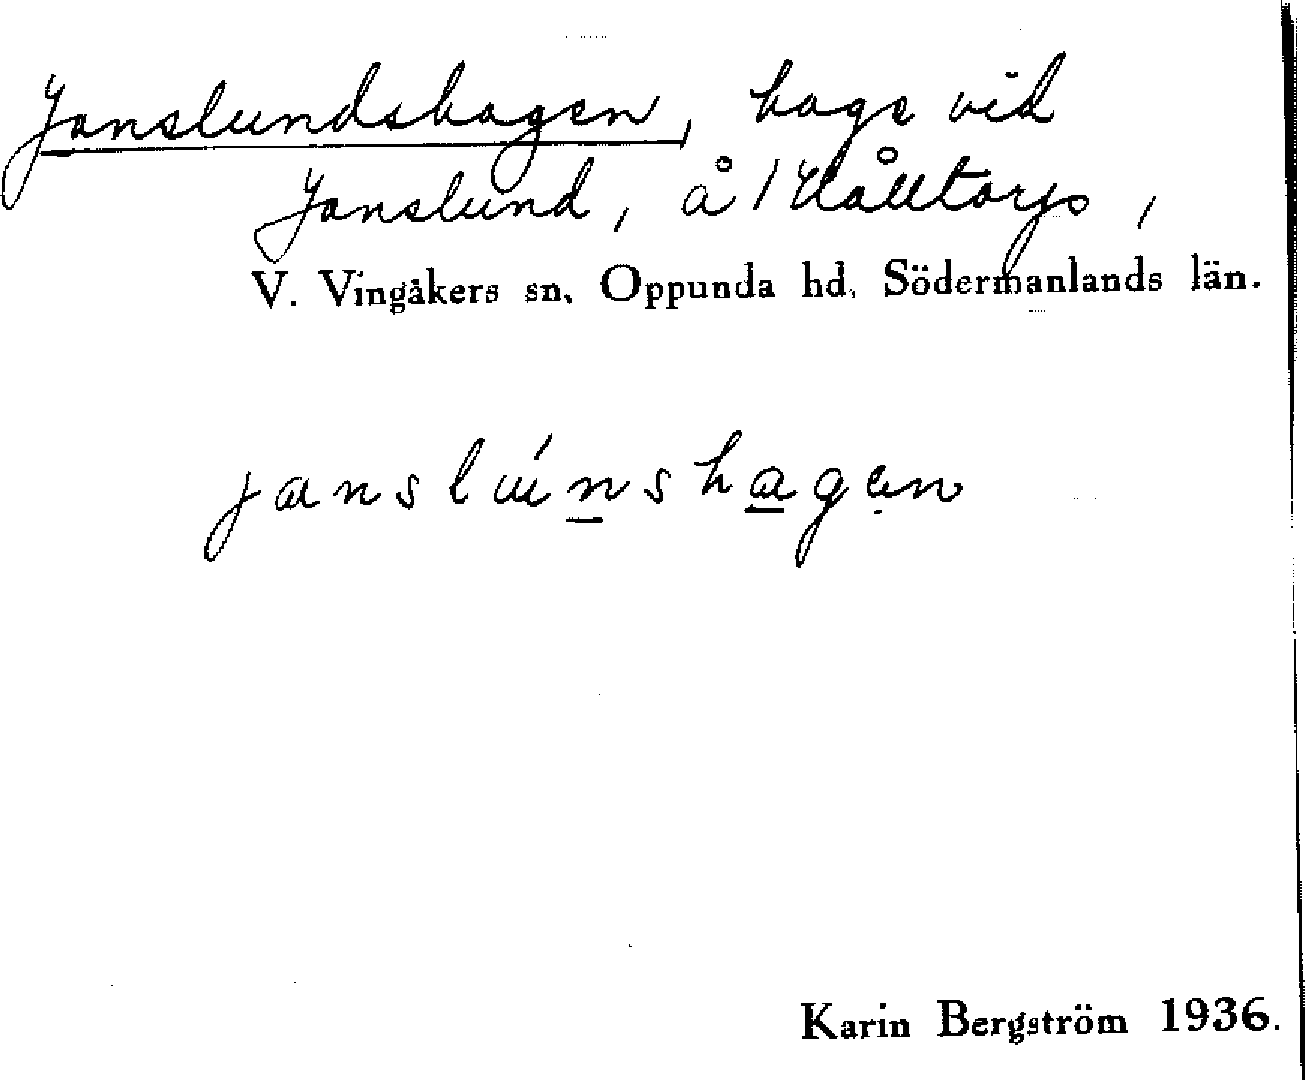 Janslundshagen, hage vid
Janslund, å / Hålltorps,
V. Vingåkers sn. Oppunda hd. Södermanlands län.
janslúnshagen
Karin Bergström 1936.